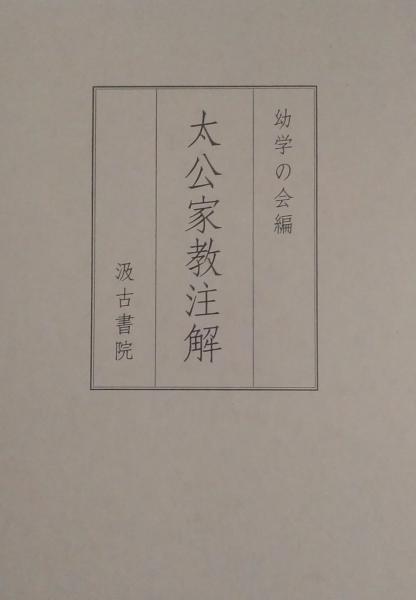 幼学の会編
太公家教注解
汲古書院